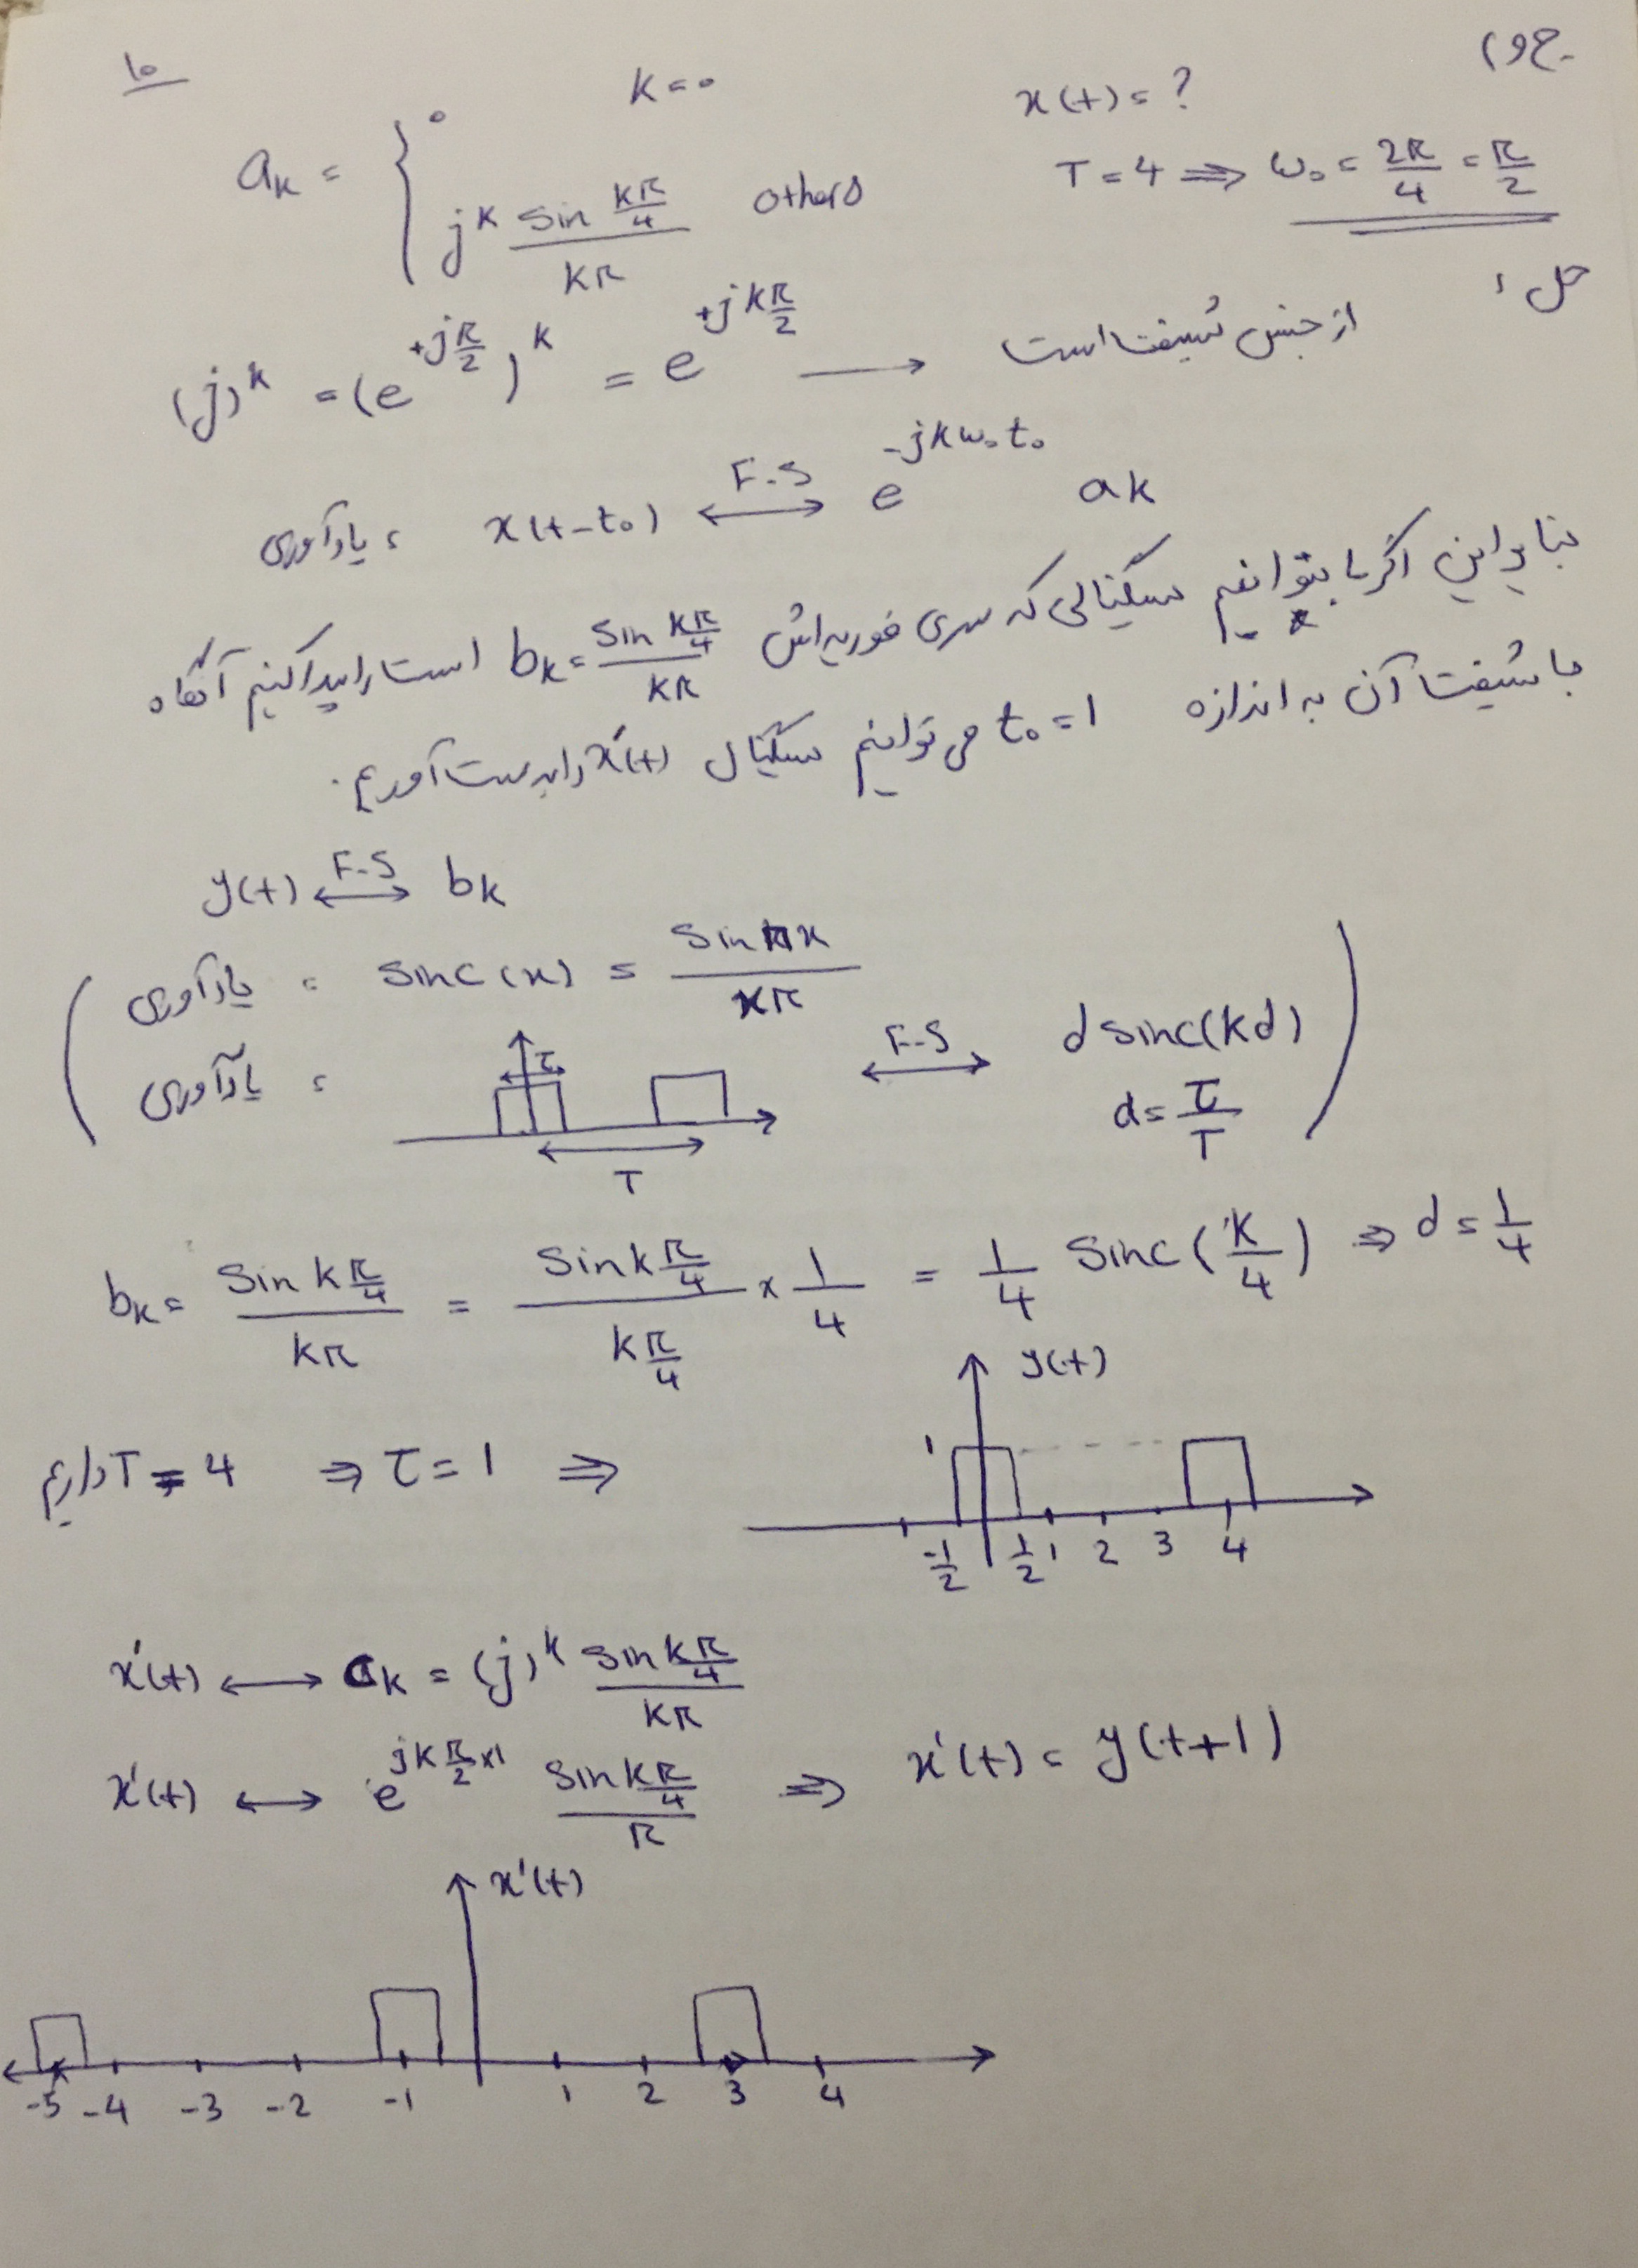 ۱۰
ج و)
a_k = { 0 k = 0
j^k sin(kπ/4) / kπ others
x(t) = ?
T = 4 ⇒ ω₀ = 2π/4 = π/2
حل :
(j)^k = (e^{+jπ/2})^k = e^{+jkπ/2} → از جنس شیفت است
یادآوری : x(t-t₀) ↔ F.S e^{-jkω₀t₀} a_k
بنابراین اگر ما بتوانیم سیگنالی که سری فوریه اش b_k = sin(kπ/4) / kπ است را پیدا کنیم آنگاه
با شیفت آن به اندازه t₀ = 1 می توانیم سیگنال x'(t) را بدست آوریم.
y(t) ↔ F.S b_k
یادآوری : sinc(x) = sin πx / xπ
یادآوری : τ T ↔ F.S d sinc(kd)
d = τ/T
b_k = sin k π/4 / kπ = sin k π/4 / k π/4 × 1/4 = 1/4 sinc(k/4) ⇒ d = 1/4
داریم T = 4 ⇒ τ = 1 ⇒
y(t)
1
-1/2 1/2 1 2 3 4
x'(t) ↔ c_k = (j)^k sin k π/4 / kπ
x'(t) ↔ e^{jk π/2 ×1} sin k π/4 / π ⇒ x'(t) = y(t+1)
x'(t)
-5 -4 -3 -2 -1 1 2 3 4